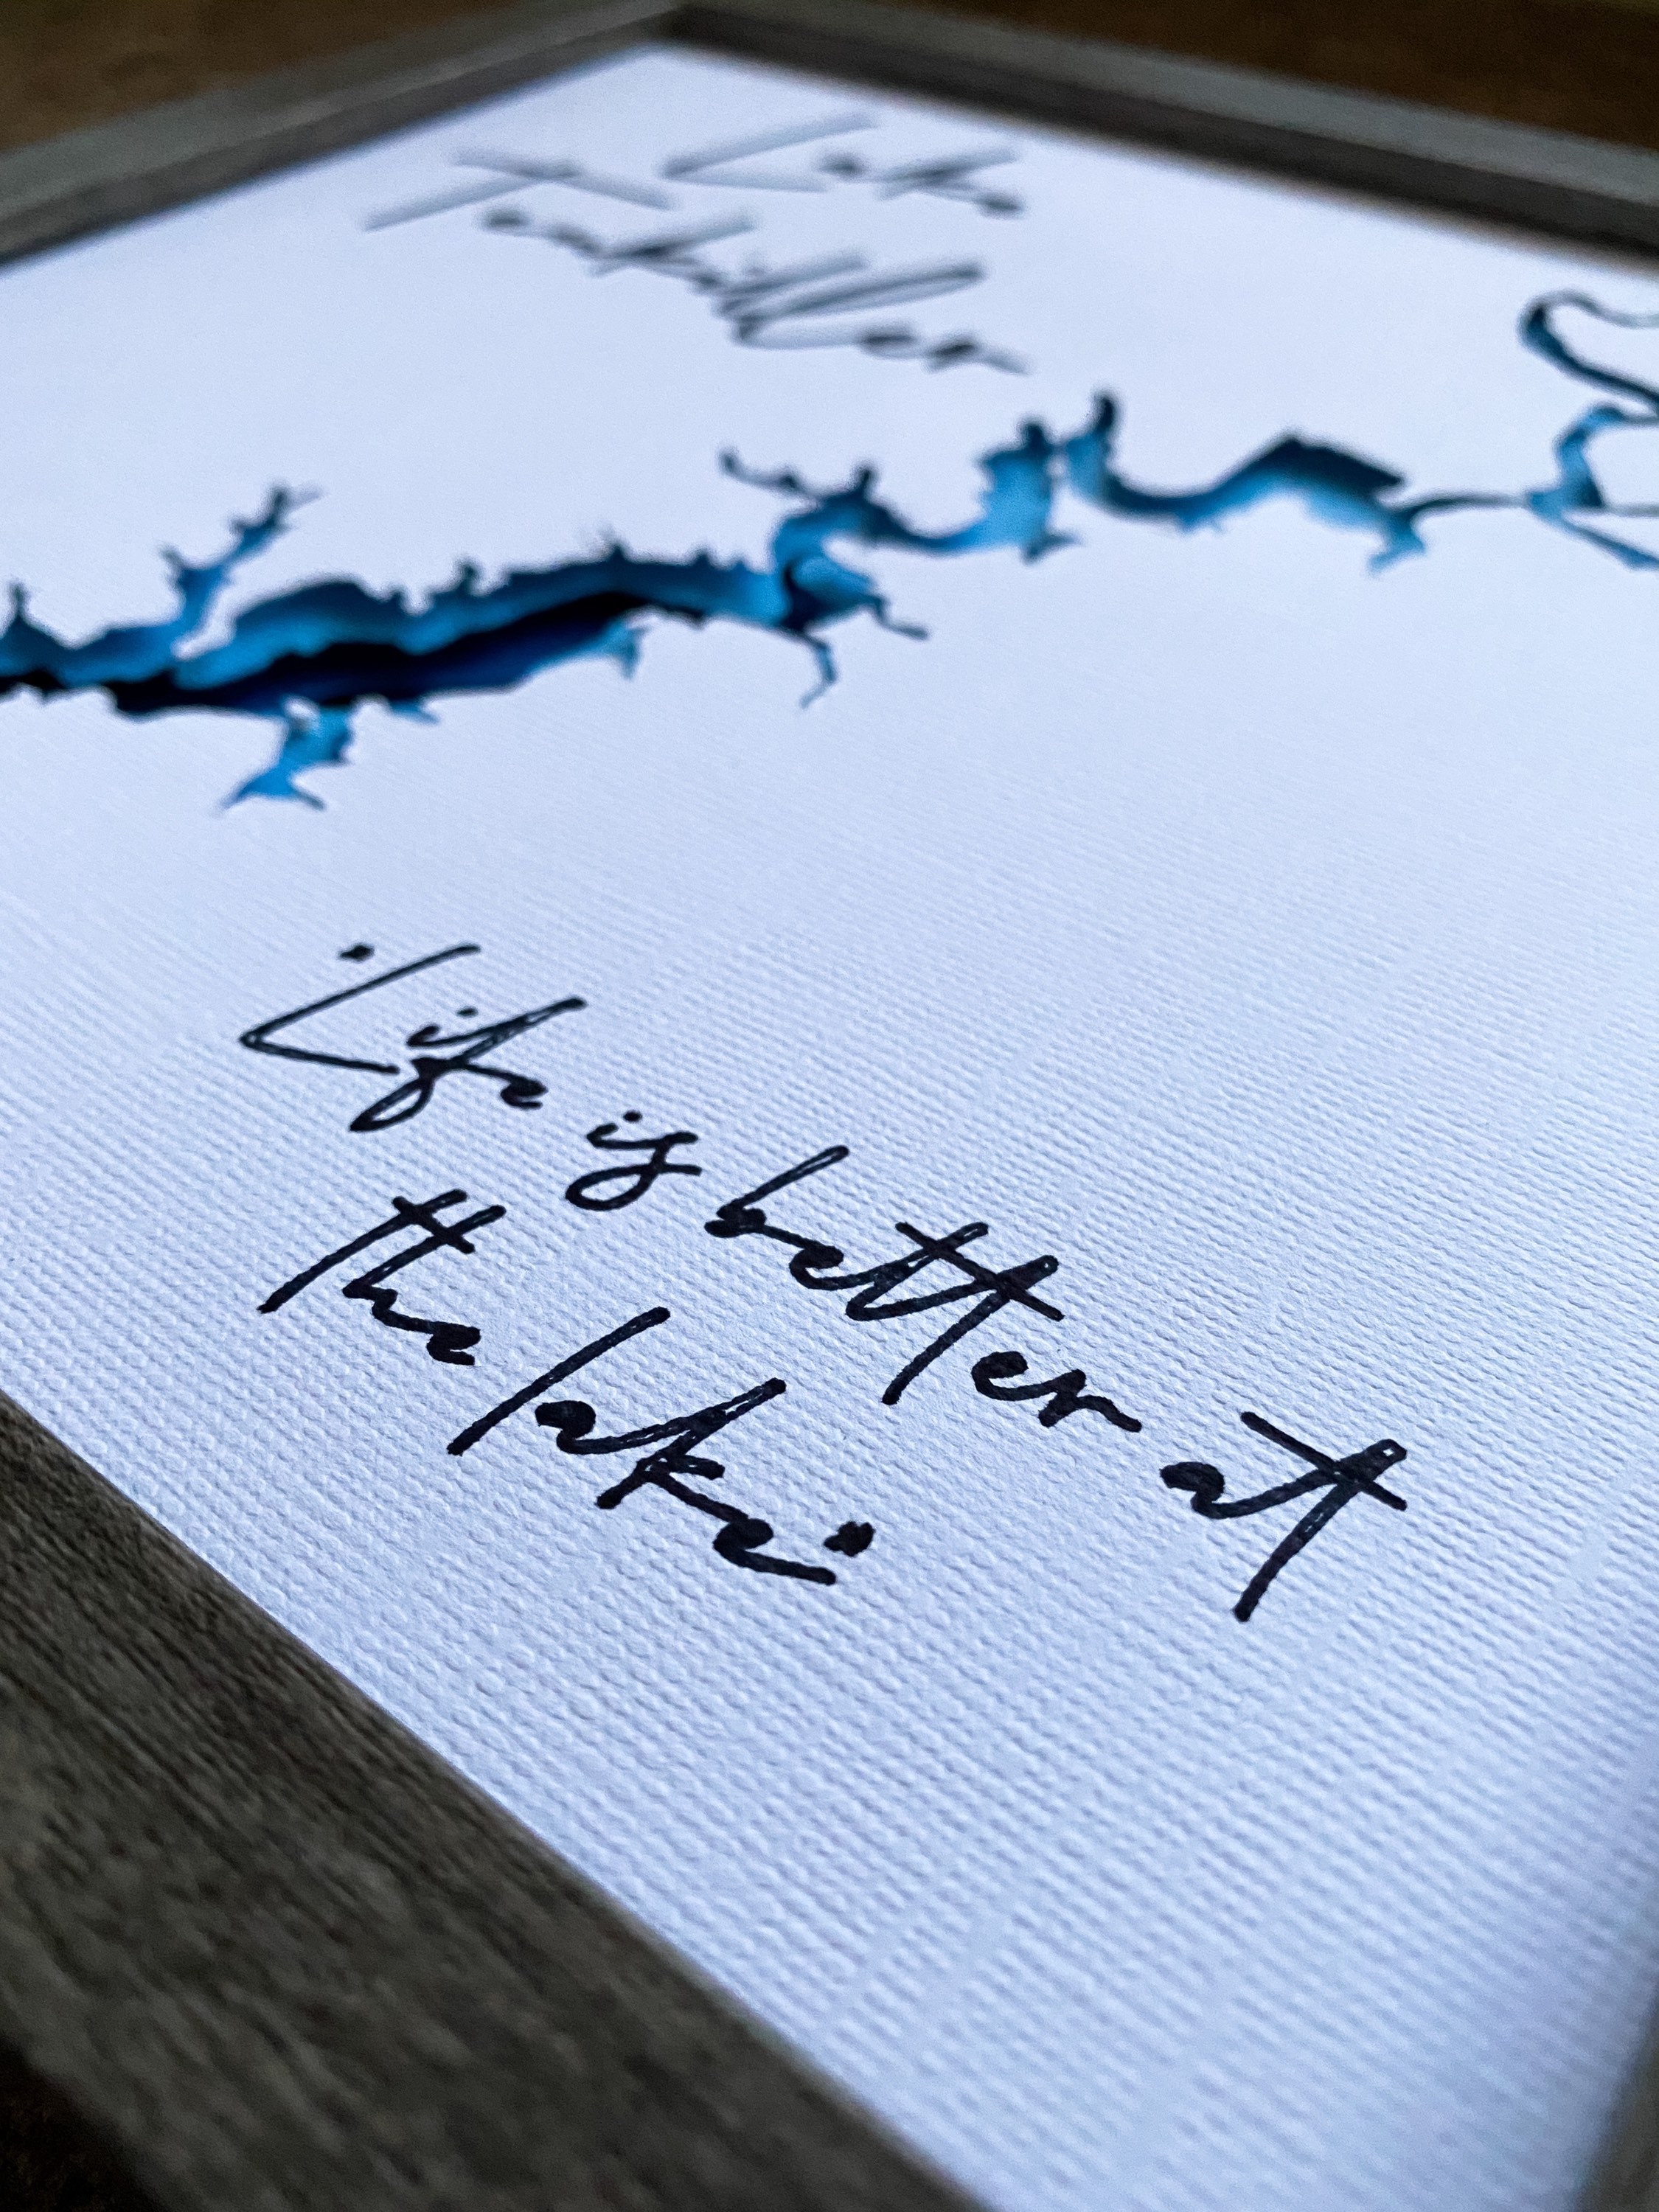 Lake
Tenkiller
Life is better at
the lake